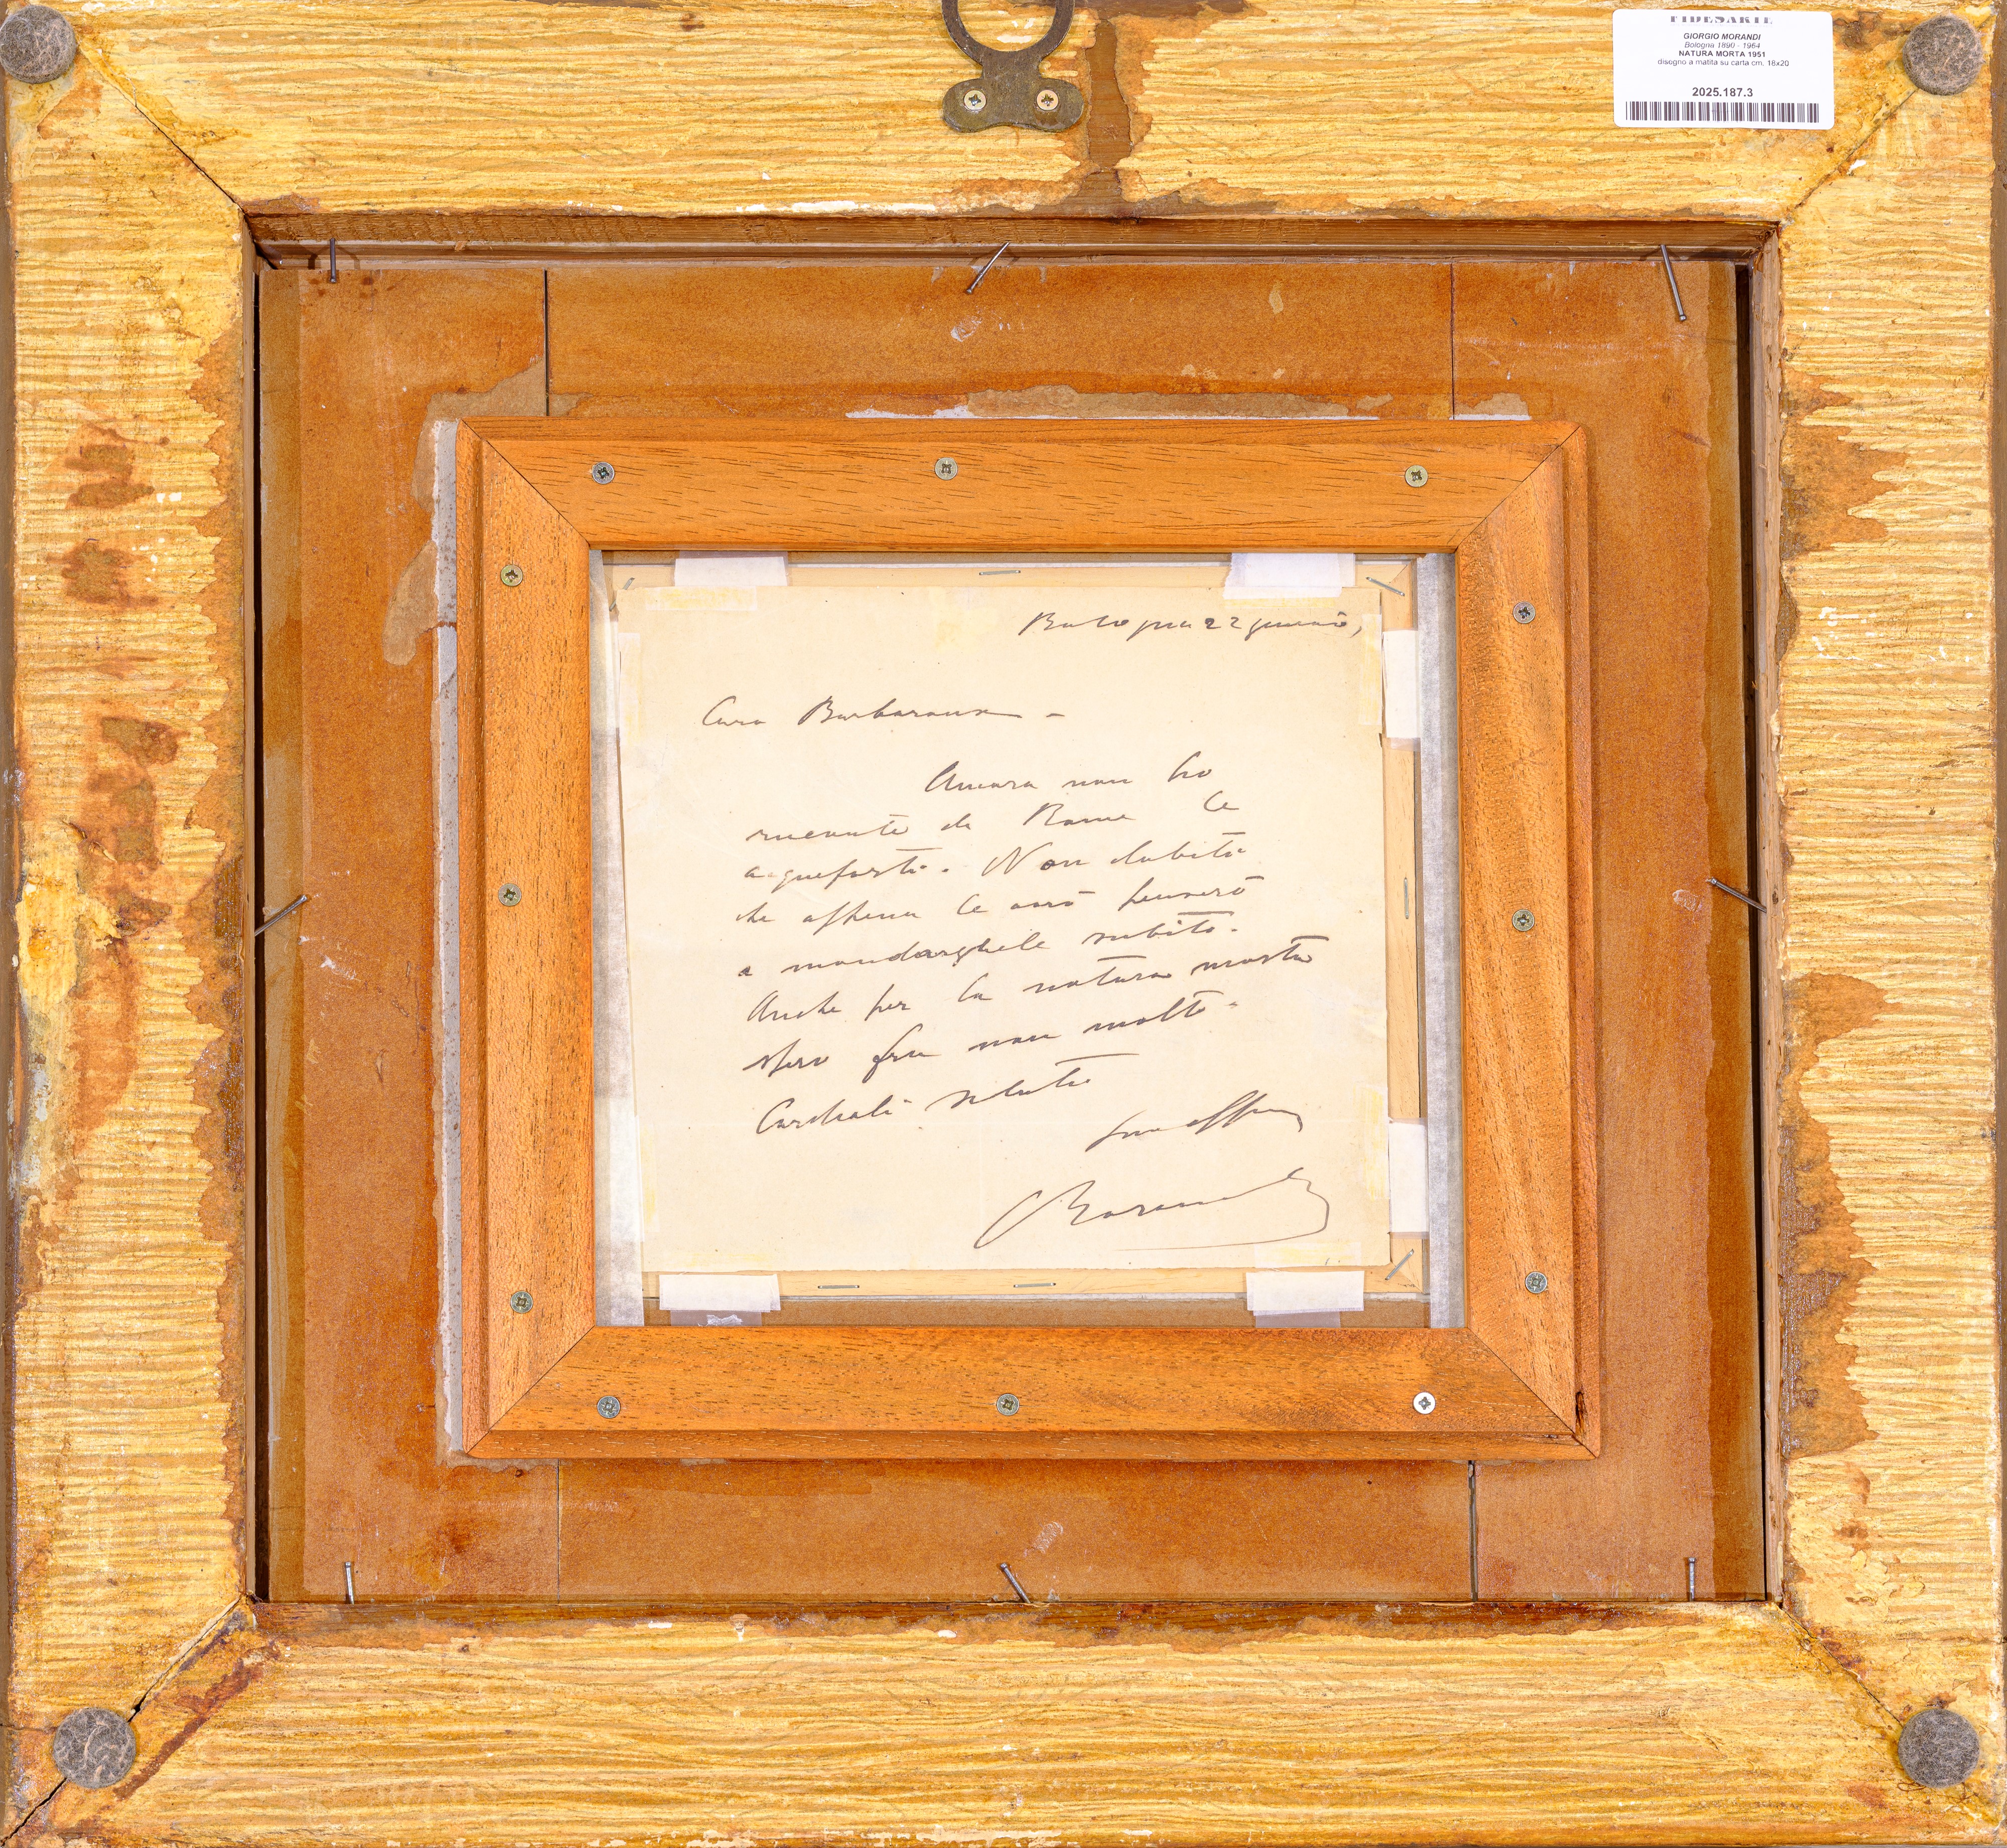 FIDESARTE
GIORGIO MORANDI
Bologna 1890 - 1964
NATURA MORTA 1951
disegno a matita su carta cm. 18x20
2025.187.3
Bologna 22 gennaio,
Caro Barbaroux -
Ancora non ho
ricevute da Roma le
acqueforti. Non dubiti
che appena le avrò penserò
a mandarghele subito.
Anche per la natura morta
spero fra non molto.
Cordiali saluti
Suo aff
Morandi